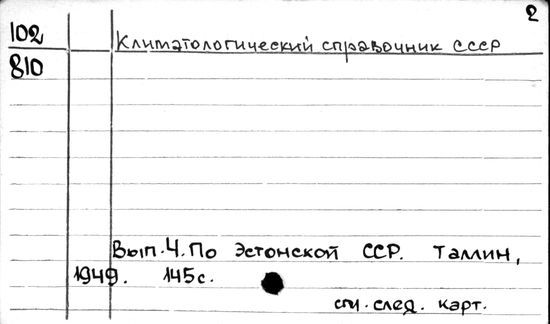 2
102 Климатологический справочник СССР
810
Вып. 4. По Эстонской ССР. Таллин,
1949. 145 с.
см. след. карт.